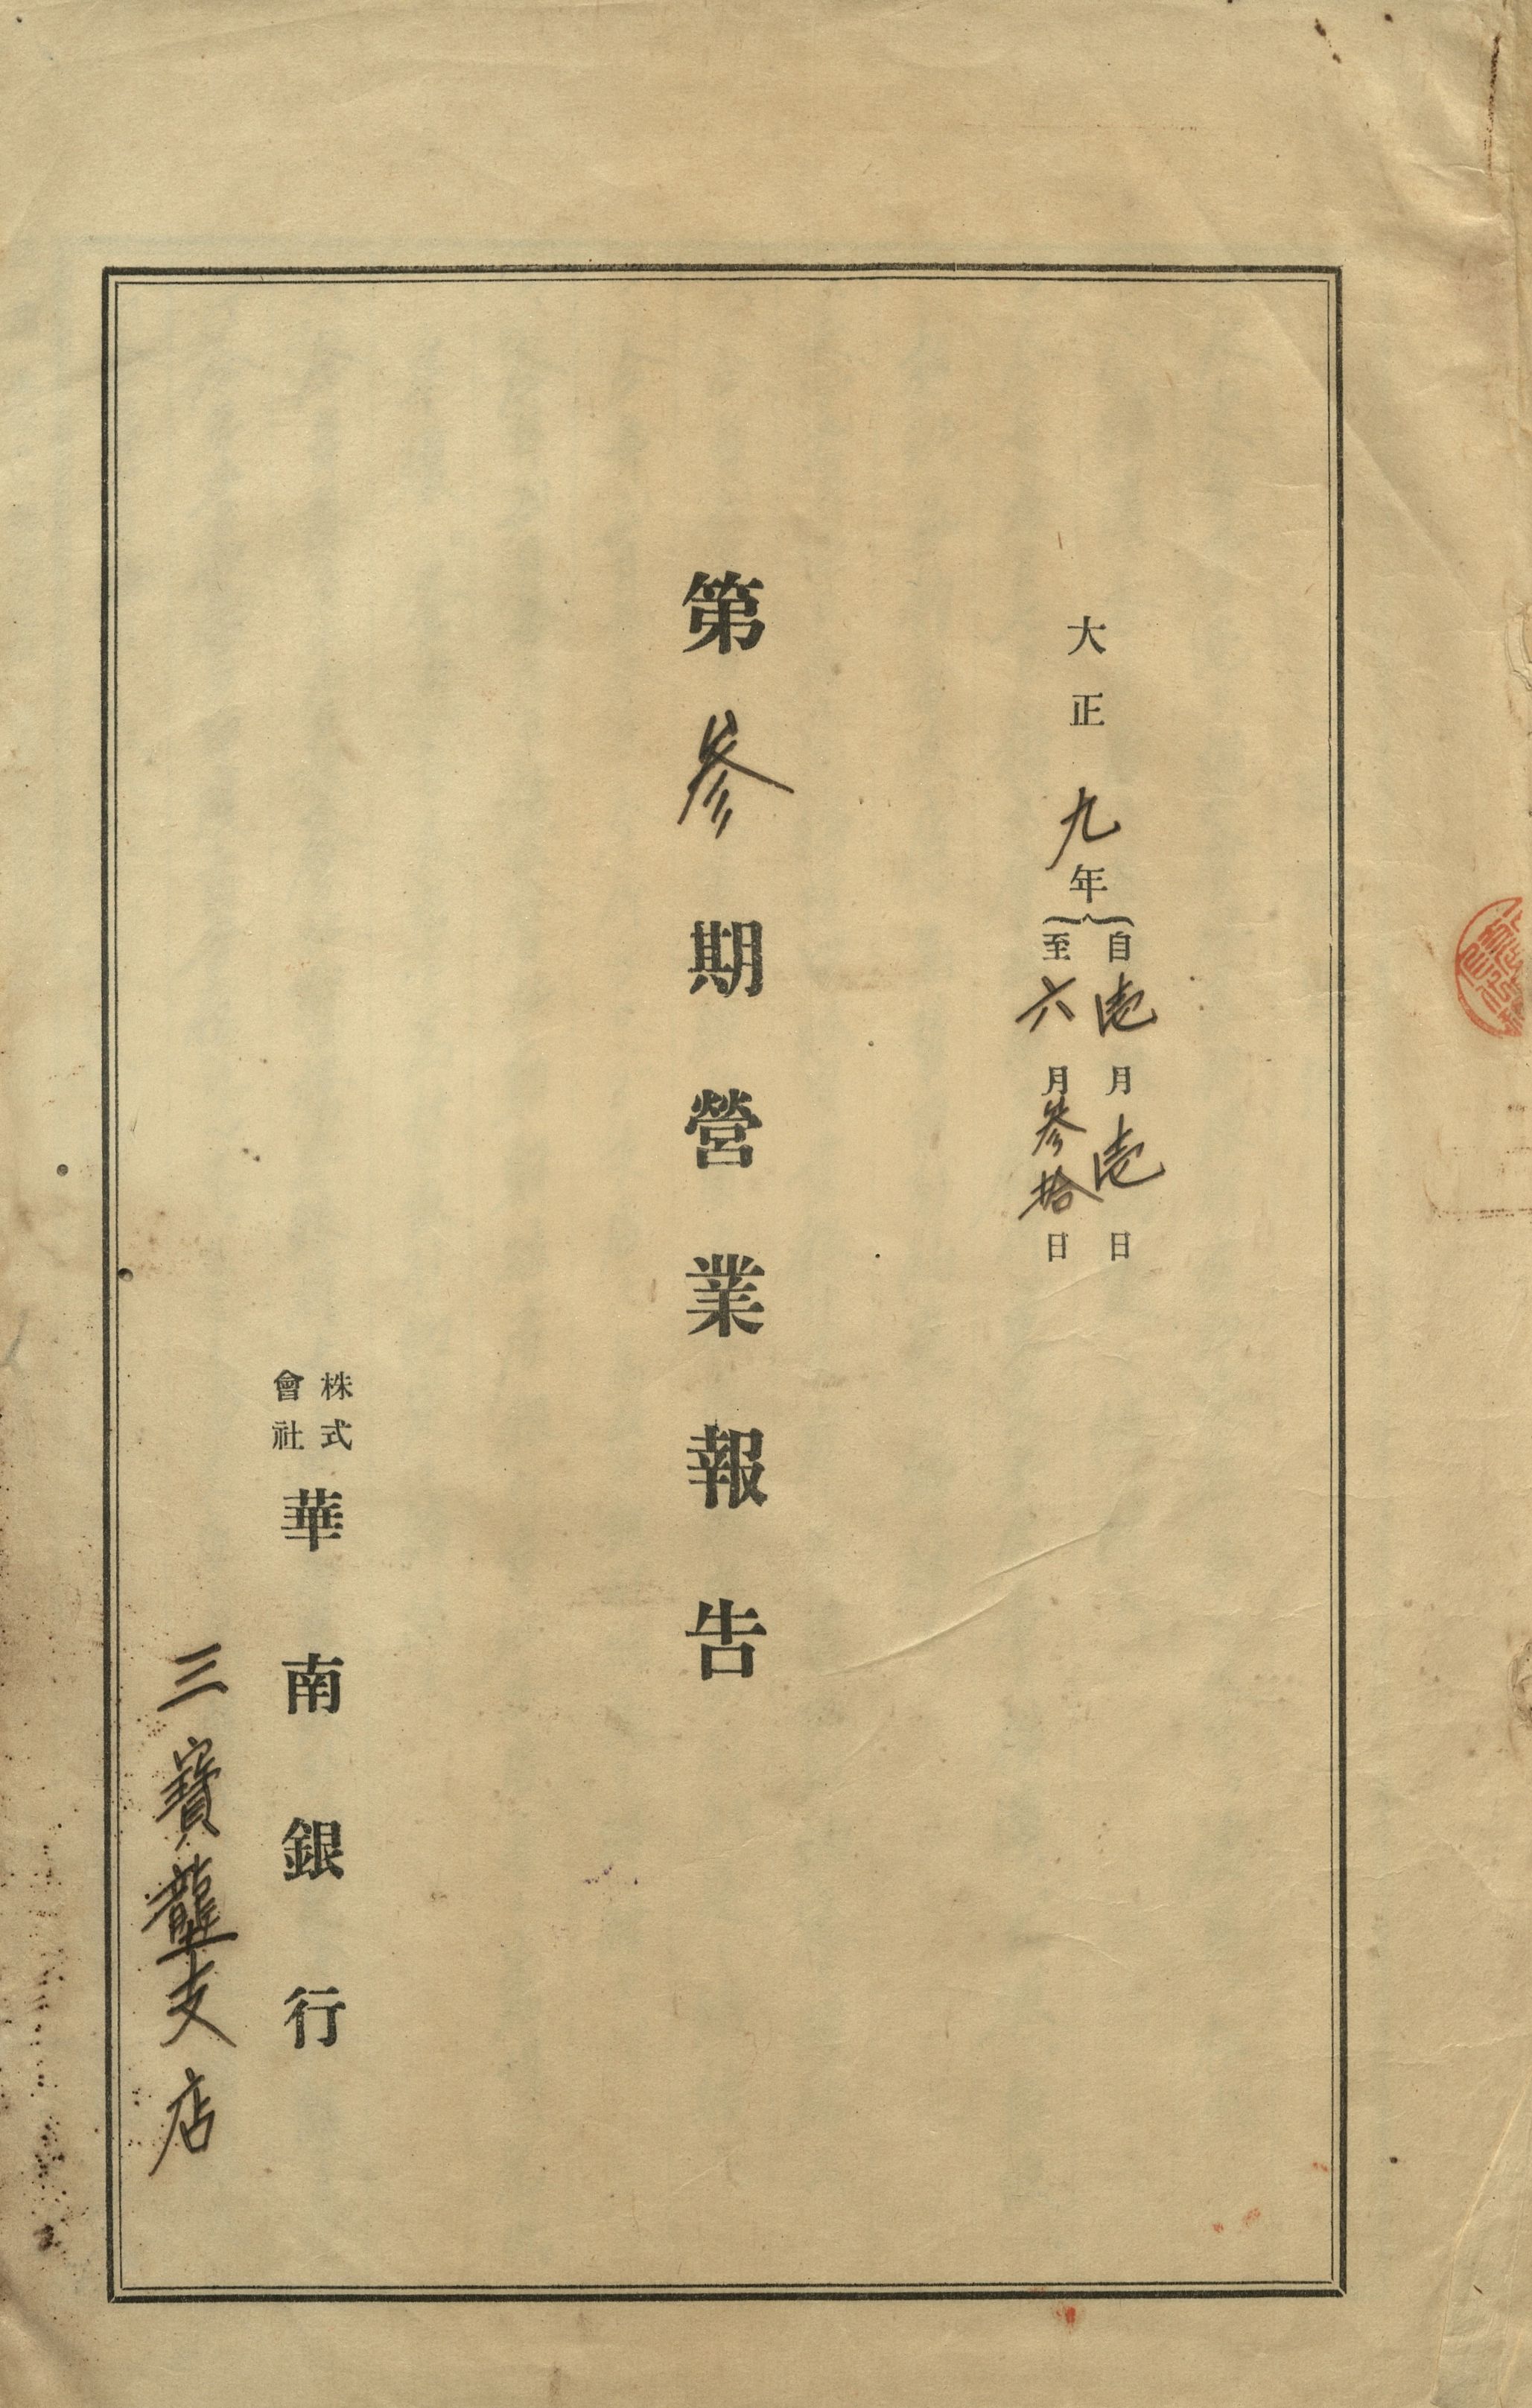 大正九年
自壱月壱日
至六月參拾日
第參期營業報告
株式會社華南銀行
三寶壟支店